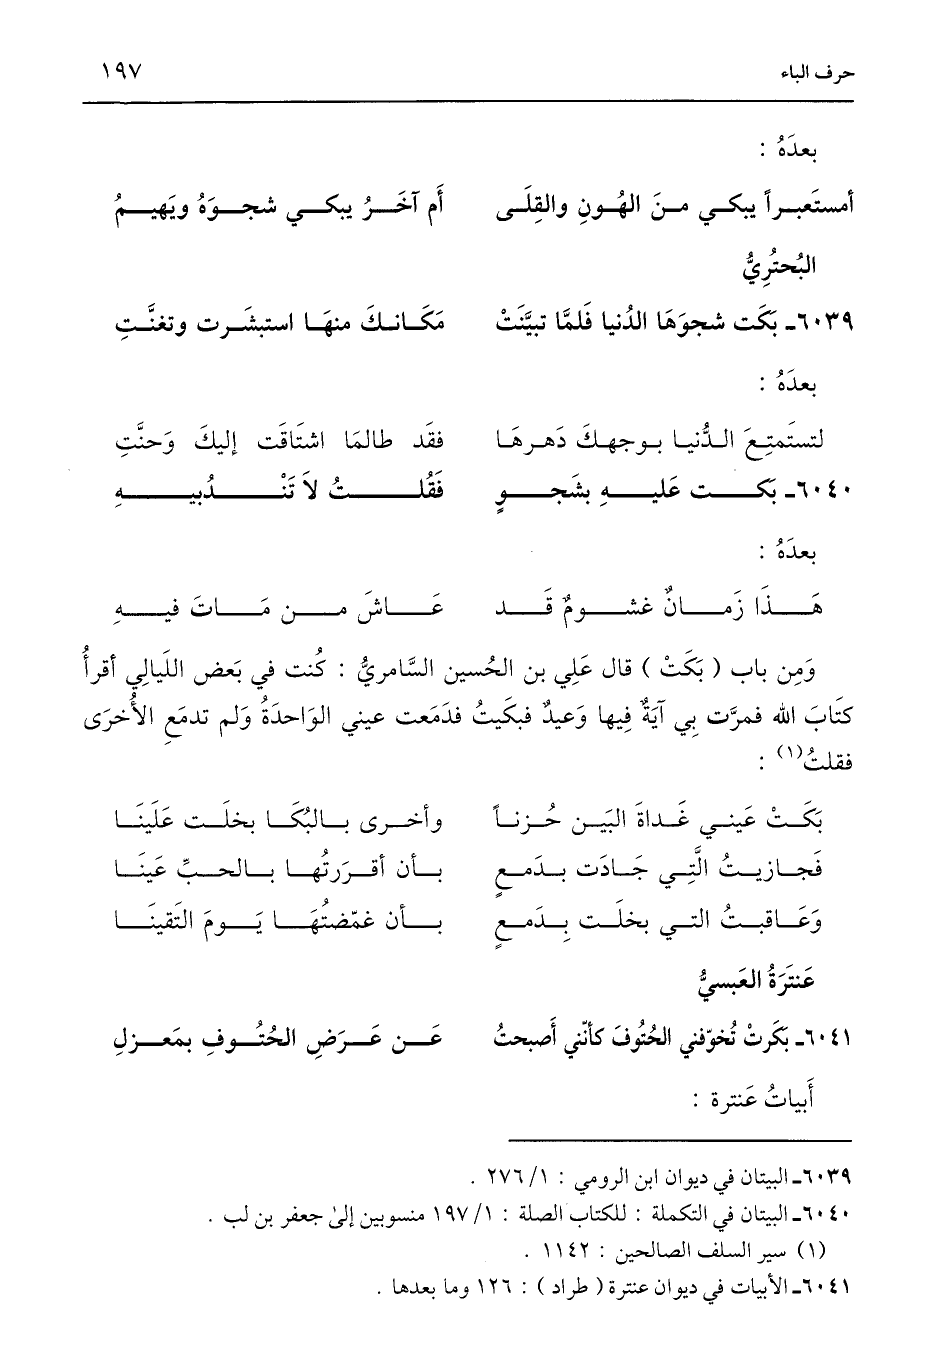 حرف الباء ١٩٧
بعدَهُ :
أمستَعبراً يبكي منَ الهُونِ والقِلَى أَم آخَرُ يبكي شجوَهُ ويَهيمُ
البُحتُرِيُّ
٦٠٣٩ـ بَكَت شجوَهَا الدُنيا فَلمَّا تبيَّنَتْ مَكَانكَ منهَا استبشَرت وتغنَّتِ
بعدَهُ :
لتستَمتِعَ الدُّنيا بوجهكَ دَهرهَا فقَد طالمَا اشتَاقَت إليكَ وَحنَّتِ
٦٠٤٠ـ بَكت عَليهِ بشَجوٍ فَقُلتُ لاَ تَنْدُبيهِ
بعدَهُ :
هَذَا زَمانٌ غشومٌ قَد عَاشَ من مَاتَ فيهِ
وَمِن باب ( بَكَتْ ) قال عَلِي بن الحُسين السَّامريُّ : كُنت في بَعض اللَيالِي أقرأُ
كتَابَ الله فمرَّت بِي آيَةٌ فِيها وَعيدٌ فبكَيتُ فدَمَعت عيني الوَاحدَةُ وَلم تدمَعِ الأُخرَى
فقلتُ(١) :
بَكَتْ عَيني غَداةَ البَين حُزناً وأخرى بالبُكَا بخلَت عَلَينَا
فَجازيتُ الَّتِي جَادَت بدَمعٍ بأن أقرَرتُها بالحبِّ عَينَا
وَعَاقبتُ التي بخلَت بِدَمعٍ بأن غمّضتُهَا يَومَ التَقينَا
عَنتَرَةُ العَبسيُّ
٦٠٤١ـ بَكَرتْ تُخوّفني الحُتُوفَ كأنّني أَصبحتُ عَن عَرَضِ الحُتُوفِ بمَعزلِ
أَبياتُ عَنترة :
٦٠٣٩ـ البيتان في ديوان ابن الرومي : ١/ ٢٧٦ .
٦٠٤٠ـ البيتان في التكملة : للكتاب الصلة : ١/ ١٩٧ منسوبين إلىٰ جعفر بن لب .
(١) سير السلف الصالحين : ١١٤٢ .
٦٠٤١ـ الأبيات في ديوان عنترة ( طراد ) : ١٢٦ وما بعدها .